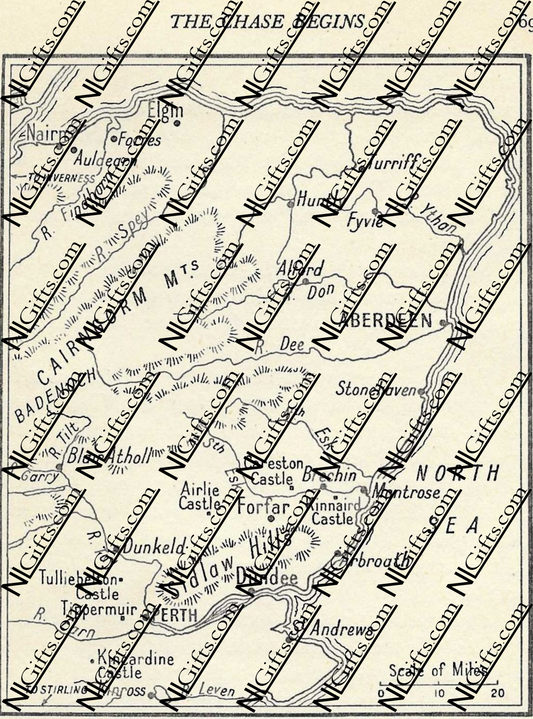 THE CHASE BEGINS
69
Elgin
Nairn
Forres
Auldearn
TO INVERNESS
R. Findhorn
Turriff
Huntly
R. Spey
Fyvie
R. Ythan
Alford
R. Don
CAIRNGORM MTS
ABERDEEN
R. Dee
BADENOCH
Stonehaven
Sth Esk
Nth Esk
R Tilt
Blair Atholl
Garry
Careston
Castle
Brechin
NORTH
SEA
Montrose
Airlie
Castle
Forfar
Kinnaird
Castle
Dunkeld
Sidlaw Hills
Arbroath
Tulliebelton
Castle
Dundee
Tippermuir
PERTH
R. Earn
Andrews
Kincardine
Castle
Scale of Miles
0 10 20
TO STIRLING
Kinross
R. Leven
NIGifts.com